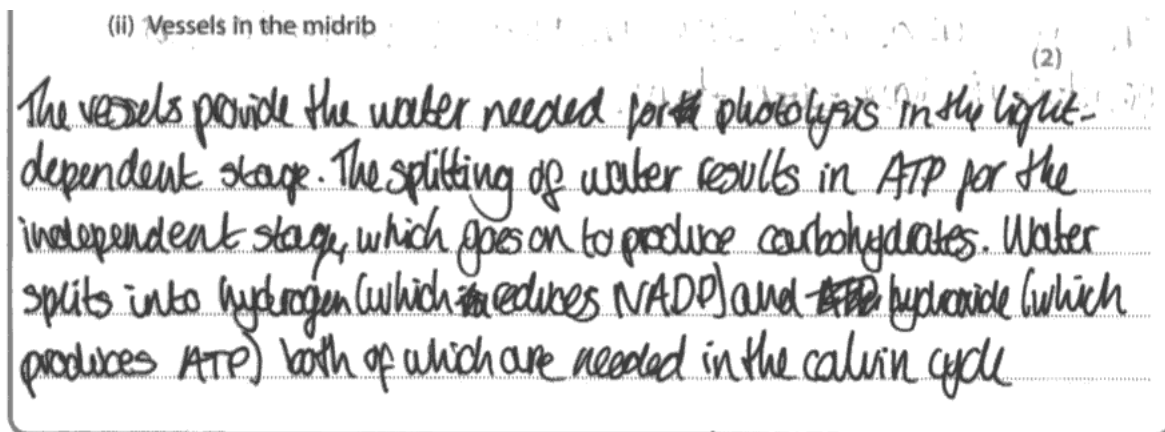 (ii) Vessels in the midrib
(2)
The vessels provide the water needed for photolysis in the light-
dependent stage. The splitting of water results in ATP for the
independent stage, which goes on to produce carbohydrates. Water
splits into hydrogen (which reduces NADP) and hydroxide (which
produces ATP) both of which are needed in the calvin cycle